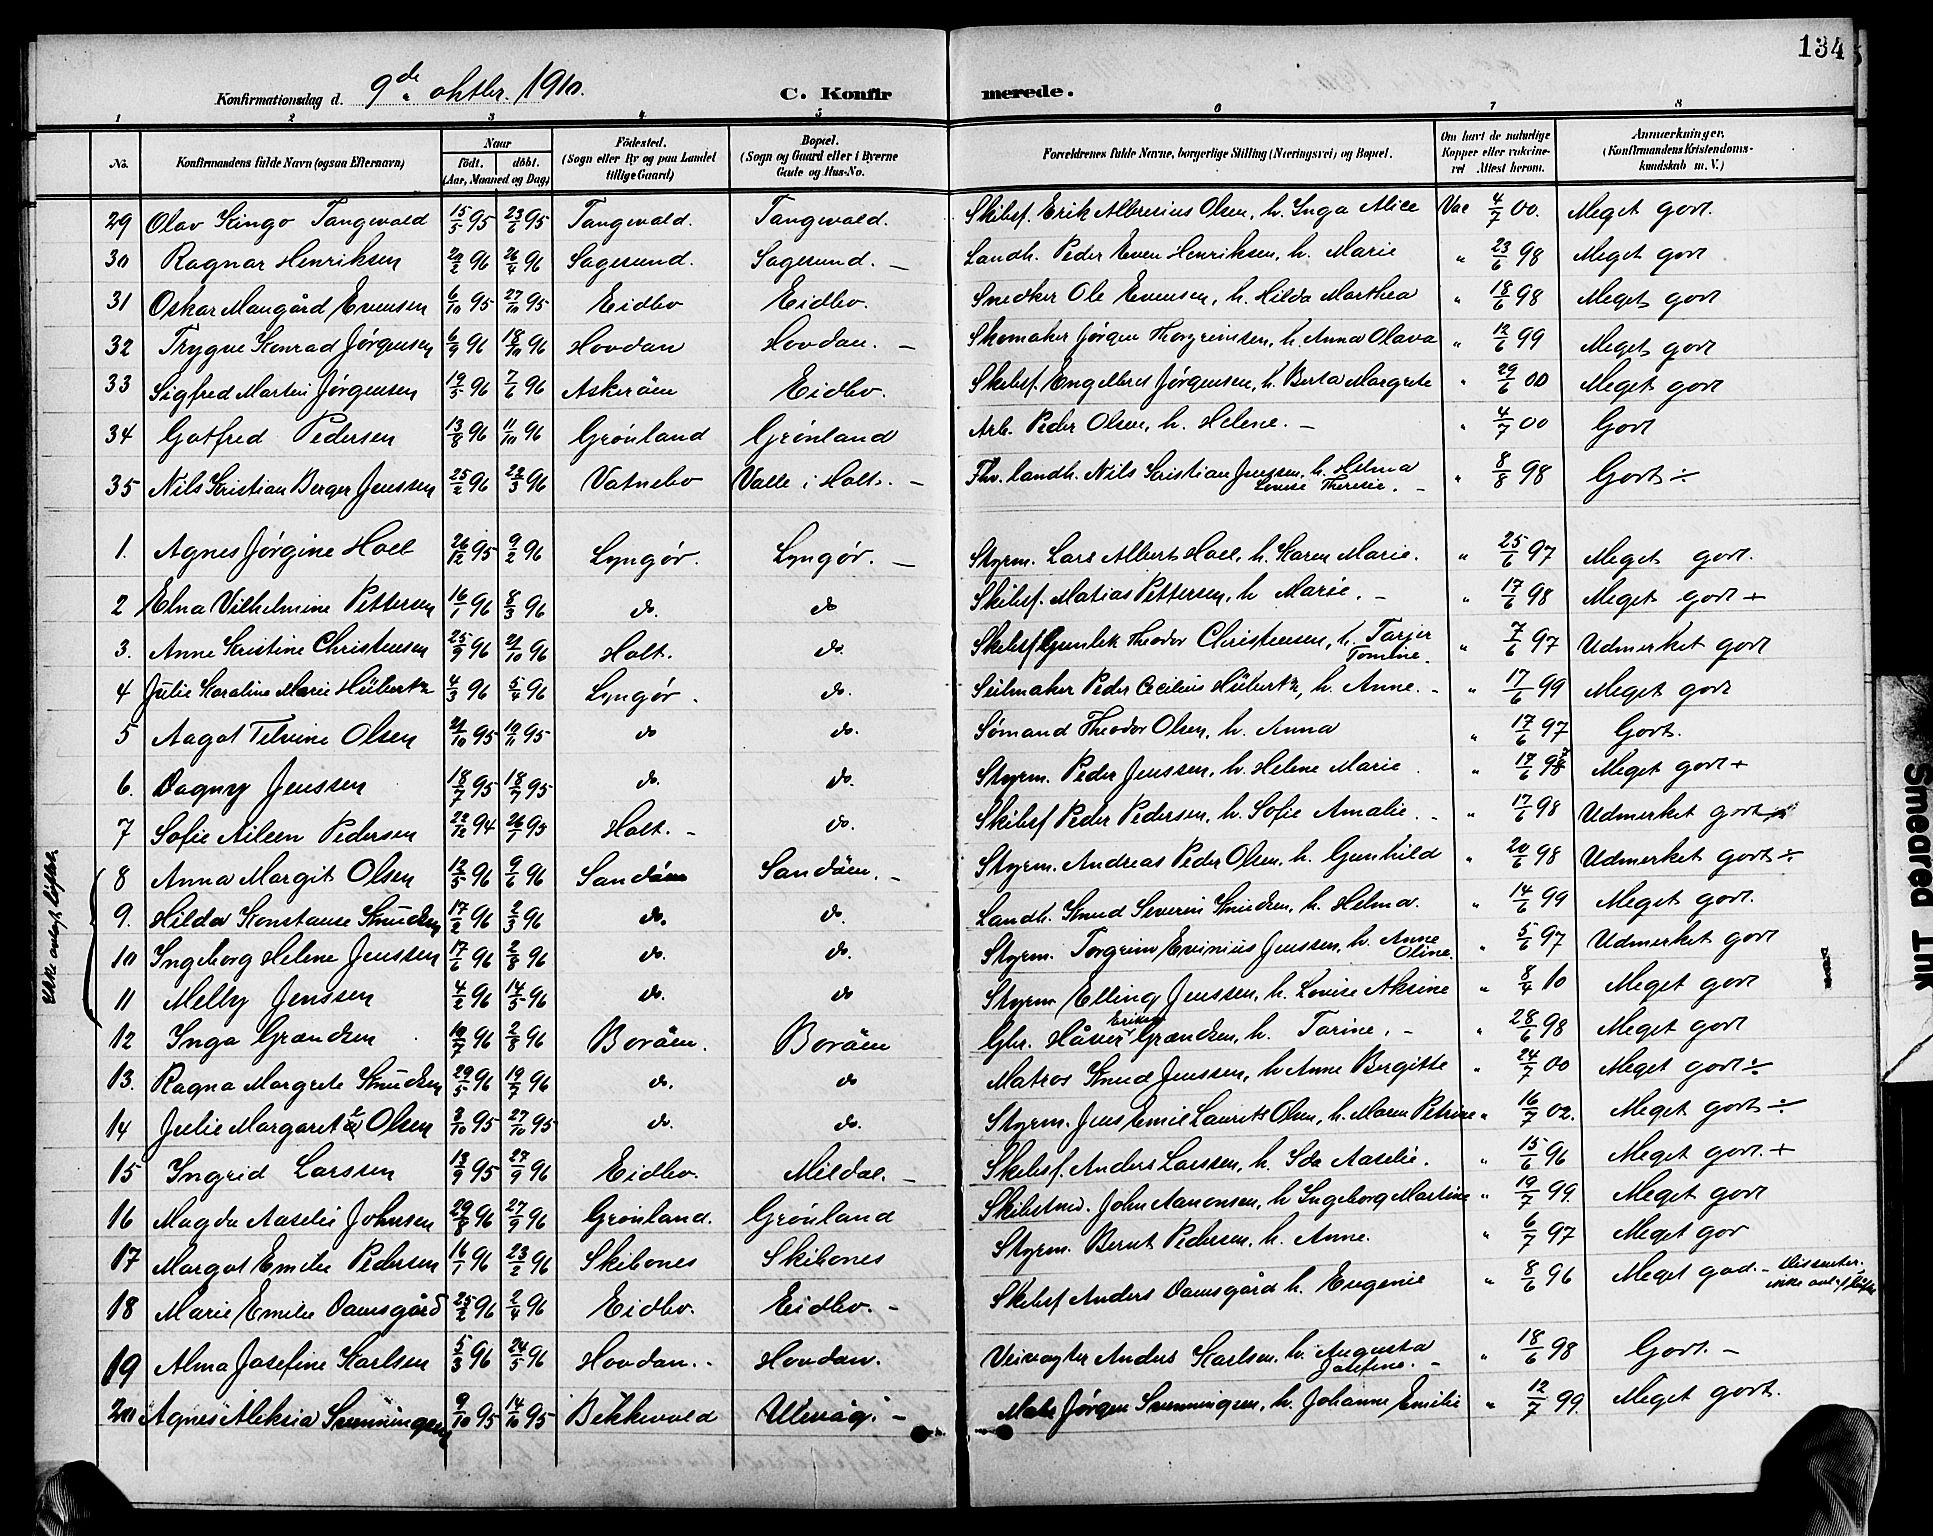 134
Konfirmationsdag d. 9de oktbr. 1910. C. Konfirmerede.
1 2 3 4 5 6 7 8
No. Konfirmandens fulde Navn (ogsaa Efternavn) Naar født, døbt. (Aar, Maaned og Dag) Fødested. (Sogn eller By og paa Landet tillige Gaard) Bopæl. (Sogn og Gaard eller i Byerne Gade og Hus-No. Forældrenes fulde Navne, borgerlige Stilling (Næringsvei) og Bopæl. Om havt de naturlige Kopper eller vakcineret Attest herom. Anmærkninger. (Konfirmandens Kristendomskundskab m. V.)
29 Olav Kingo Tangwald 15/5 95 23/6 95 Tangwald. Tangwald. Skibsf. Erik Albresius Olsen, h. Inga Alice Vac 4/7 00. Meget godt.
30 Ragnar Henriksen 20/2 96 26/4 96 Sagesund. Sagesund. — Landh. Peder Even Henriksen, h. Marie " 23/6 98 Meget godt
31 Oskar Maugård Evensen 6/10 95 27/10 95 Eidbo Eidbo. Snedker Ole Evensen, h. Hilda Marthea " 18/6 98 Meget godt
32 Trygve Konrad Jørgensen 6/9 96 18/10 96 Hovdan Hovdan. — Skomaker Jørgen Thorgrimsen, h. Anna Olava " 12/6 99 Meget godt
33 Sigfred Martin Jørgensen 19/5 96 7/6 96 Askerøen Eidbo. Skibsf. Engelbret Jørgensen, h. Berta Margrete " 29/6 00 Meget godt
34 Gotfred Pedersen 13/8 96 11/10 96 Grønland Grønland Arb. Peder Olsen, h. Helene. — " 4/7 00 Godt
35 Nils Kristian Berger Jenssen 25/2 96 22/3 96 Vatnebo Valle i Holt. — Fhv. landh. Nils Kristian Jenssen, h. Helma Lovise Therese. — " 8/8 98 Godt ÷
1. Agnes Jørgine Holt 26/12 95 9/2 96 Lyngør. Lyngør. — Styrm. Lars Albert Holt, h. Karen Marie. " 25/6 97 Meget godt.
2 Elna Vilhelmine Pettersen 16/1 96 8/3 96 do. do Skibsf. Matias Pettersen, h Marie. — " 17/6 98 Meget godt +
3. Anne Kristine Christensen 25/9 96 21/10 96 Holt. do. Skibsf Gunlek Theodor Christensen, h. Tarjer Tomine. " 7/6 97 Udmerket godt
4 Julie Karoline Marie Hübertz 4/3 96 5/4 96 Lyngør. do. Seilmaker Peder Cecilius Hübertz, h. Anne. - " 17/6 99 Meget godt
5 Aagot Telvine Olsen 21/10 95 10/11 95 do do. Sømand Theodor Olsen, h. Anna " 17/6 97 Godt.
6. Dagny Jenssen 18/7 95 18/9 95 do. do. Styrm. Peder Jenssen, h. Helene Marie " 17/6 98 Meget godt +
7 Sofie Aileen Pedersen 22/12 94 26/1 95 Holt. - do. Skibsf Peder Pedersen, h. Sofie Amalie. - " 17/6 98 Udmerket godt
8 Anna Margit Olsen 12/5 96 9/6 96 Sandøen Sandøen. - Styrm. Andreas Peder Olsen, h. Gunhild " 20/6 98 Udmerket godt ÷
9. Hilda Konstanse Knudsen 17/2 96 2/3 96 do. do. Landh. Knud Severin Knudsen, h. Helma. " 14/6 99 Meget godt.
10 Ingeborg Helene Jenssen 17/6 96 2/8 96 do. do. Styrm. Torgrim Evinius Jenssen, h. Anne Oline. " 5/6 97 Udmerket godt
11 Melby Jenssen 4/2 96 14/5 96 do. do Styrm Elling Jenssen, h. Lovise Aksine " 8/4 10 Meget godt
12 Inga Grændsen 10/7 96 2/8 96 Borøen. Borøen Gbr. Håver Eriksen Grændsen, h. Tarine. - " 28/6 98 Meget godt
13. Ragna Margrete Knudsen 29/5 96 19/7 96 do. do Matros Knud Jenssen, h Anne Bergitte " 24/7 00 Meget godt ÷
14 Julie Margaret Olsen 3/10 95 27/10 95 do. do. Styrm. Jens Emil Laurits Olsen, h. Maren Petrine " 16/7 02. Meget godt ÷
15 Ingrid Larssen 13/9 95 27/9 96 Eidbo. Mildal. - Skibsf. Anders Larssen, h. Ida Aaselie. " 15/6 96 Meget godt. +
16 Magda Aaselie Johnsen 29/8 96 27/9 96 Grønland. Grønland Skibstmd. John Aanonsen, h Ingeborg Martine " 19/7 99. Meget godt
17 Margot Emilie Pedersen 16/1 96 23/2 96 Skibones Skibones Styrm. Bernt Pedersen, h. Anne. " 6/7 97 Meget god
18 Marie Emilie Damsgård 25/2 96 2/4 96 Eidbo. Eidbo. - Skibsf Anders Damsgård h. Eugenie " 8/6 96 Meget god. - Dissenter, ikke avl. løfte
19 Alma Josefine Karlsen 5/3 96 24/5 96 Hovdan. - Hovdan. Veivogter Anders Karlsen, h. Augusta Josefine. - " 18/6 98 Godt. -
20 Agnes Aleksia Svenningsen 9/10 95 14/10 95 Bekkevold Ulevåg. - Maler Jørgen Svenningsen, h. Johanne Emilie " 12/7 99. Meget godt.
Ikke avlagt løfte.
Smeared Ink